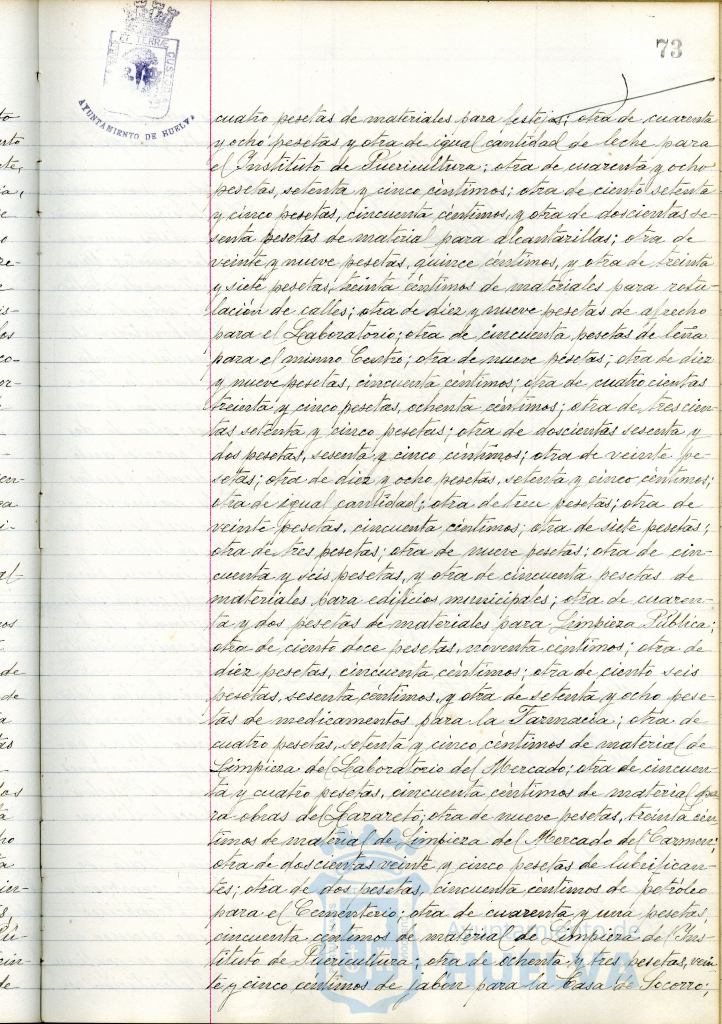 73
AYUNTAMIENTO DE HUELVA
cuatro pesetas de materiales para festejos; otra de cuarenta
y ocho pesetas y otra de igual cantidad de leche para
el Instituto de Puericultura; otra de cuarenta y ocho
pesetas, setenta y cinco céntimos; otra de ciento setenta
y cinco pesetas, cincuenta céntimos, y otra de doscientas se-
senta pesetas de material para alcantarillas; otra de
veinte y nueve pesetas, quince céntimos, y otra de treinta
y siete pesetas, treinta céntimos de materiales para rotu-
lación de calles; otra de diez y nueve pesetas de afrecho
para el Laboratorio; otra de cincuenta pesetas de leña
para el mismo Centro; otra de nueve pesetas; otra de diez
y nueve pesetas, cincuenta céntimos; otra de cuatrocientas
treinta y cinco pesetas, ochenta céntimos; otra de trescien-
tas setenta y cinco pesetas; otra de doscientas sesenta y
dos pesetas, sesenta y cinco centimos; otra de veinte pe-
setas; otra de diez y ocho pesetas, setenta y cinco céntimos;
otra de igual cantidad; otra de tres pesetas; otra de
veinte pesetas, cincuenta céntimos; otra de siete pesetas;
otra de tres pesetas; otra de nueve pesetas; otra de cin-
cuenta y seis pesetas, y otra de cincuenta pesetas de
materiales para edificios municipales; otra de cuaren-
ta y dos pesetas de materiales para Limpieza Pública;
otra de ciento doce pesetas, noventa céntimos; otra de
diez pesetas, cincuenta céntimos; otra de ciento seis
pesetas, sesenta céntimos, y otra de setenta y ocho pese-
tas de medicamentos para la Farmacia; otra de
cuatro pesetas, setenta y cinco céntimos de material de
Limpieza del Laboratorio del Mercado; otra de cincuen-
ta y cuatro pesetas, cincuenta céntimos de material pa-
ra obras del Lazareto; otra de nueve pesetas, treinta cén-
timos de material de Limpieza del Mercado del Carmen;
otra de doscientas veinte y cinco pesetas de lubrifican-
tes; otra de dos pesetas, cincuenta céntimos de petróleo
para el Cementerio; otra de cuarenta y una pesetas,
cincuenta centimos de material de Limpieza del Ins-
tituto de Puericultura; otra de ochenta y tres pesetas, vein-
te y cinco centimos de jabón para la Casa de Socorro;
Ayuntamiento de
HUELVA